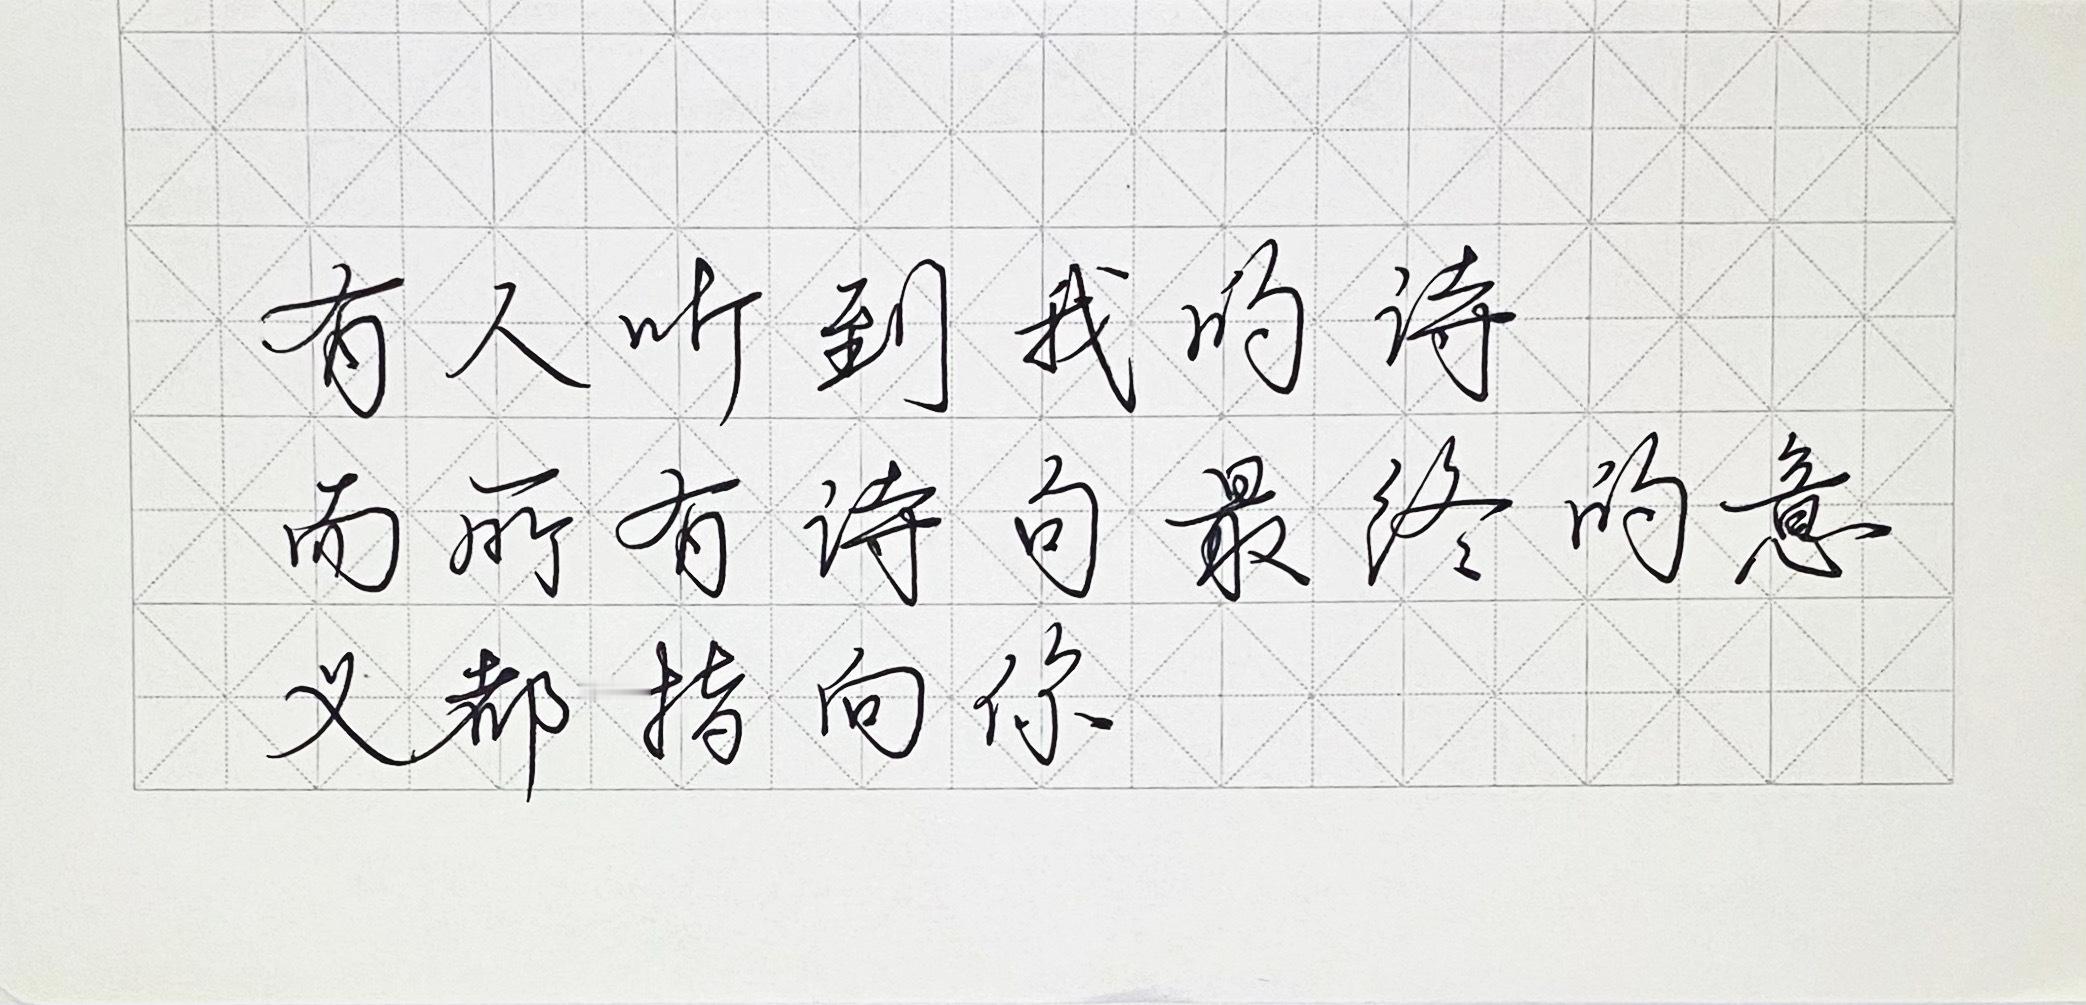 有人听到我的诗
而所有诗句最终的意
义都指向你